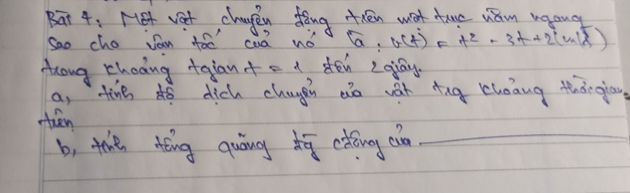 Bài 4: Một vật chuyển động trên một trục nằm ngang
sao cho vận tốc của nó là: v(t) = t² - 3t + 2 (m/s)
trong khoảng tgian t = 1 đến 2 giây.
a, tính độ dịch chuyển của vật trg khoảng thời gian
trên
b, tính tổng quãng đg cđộng của